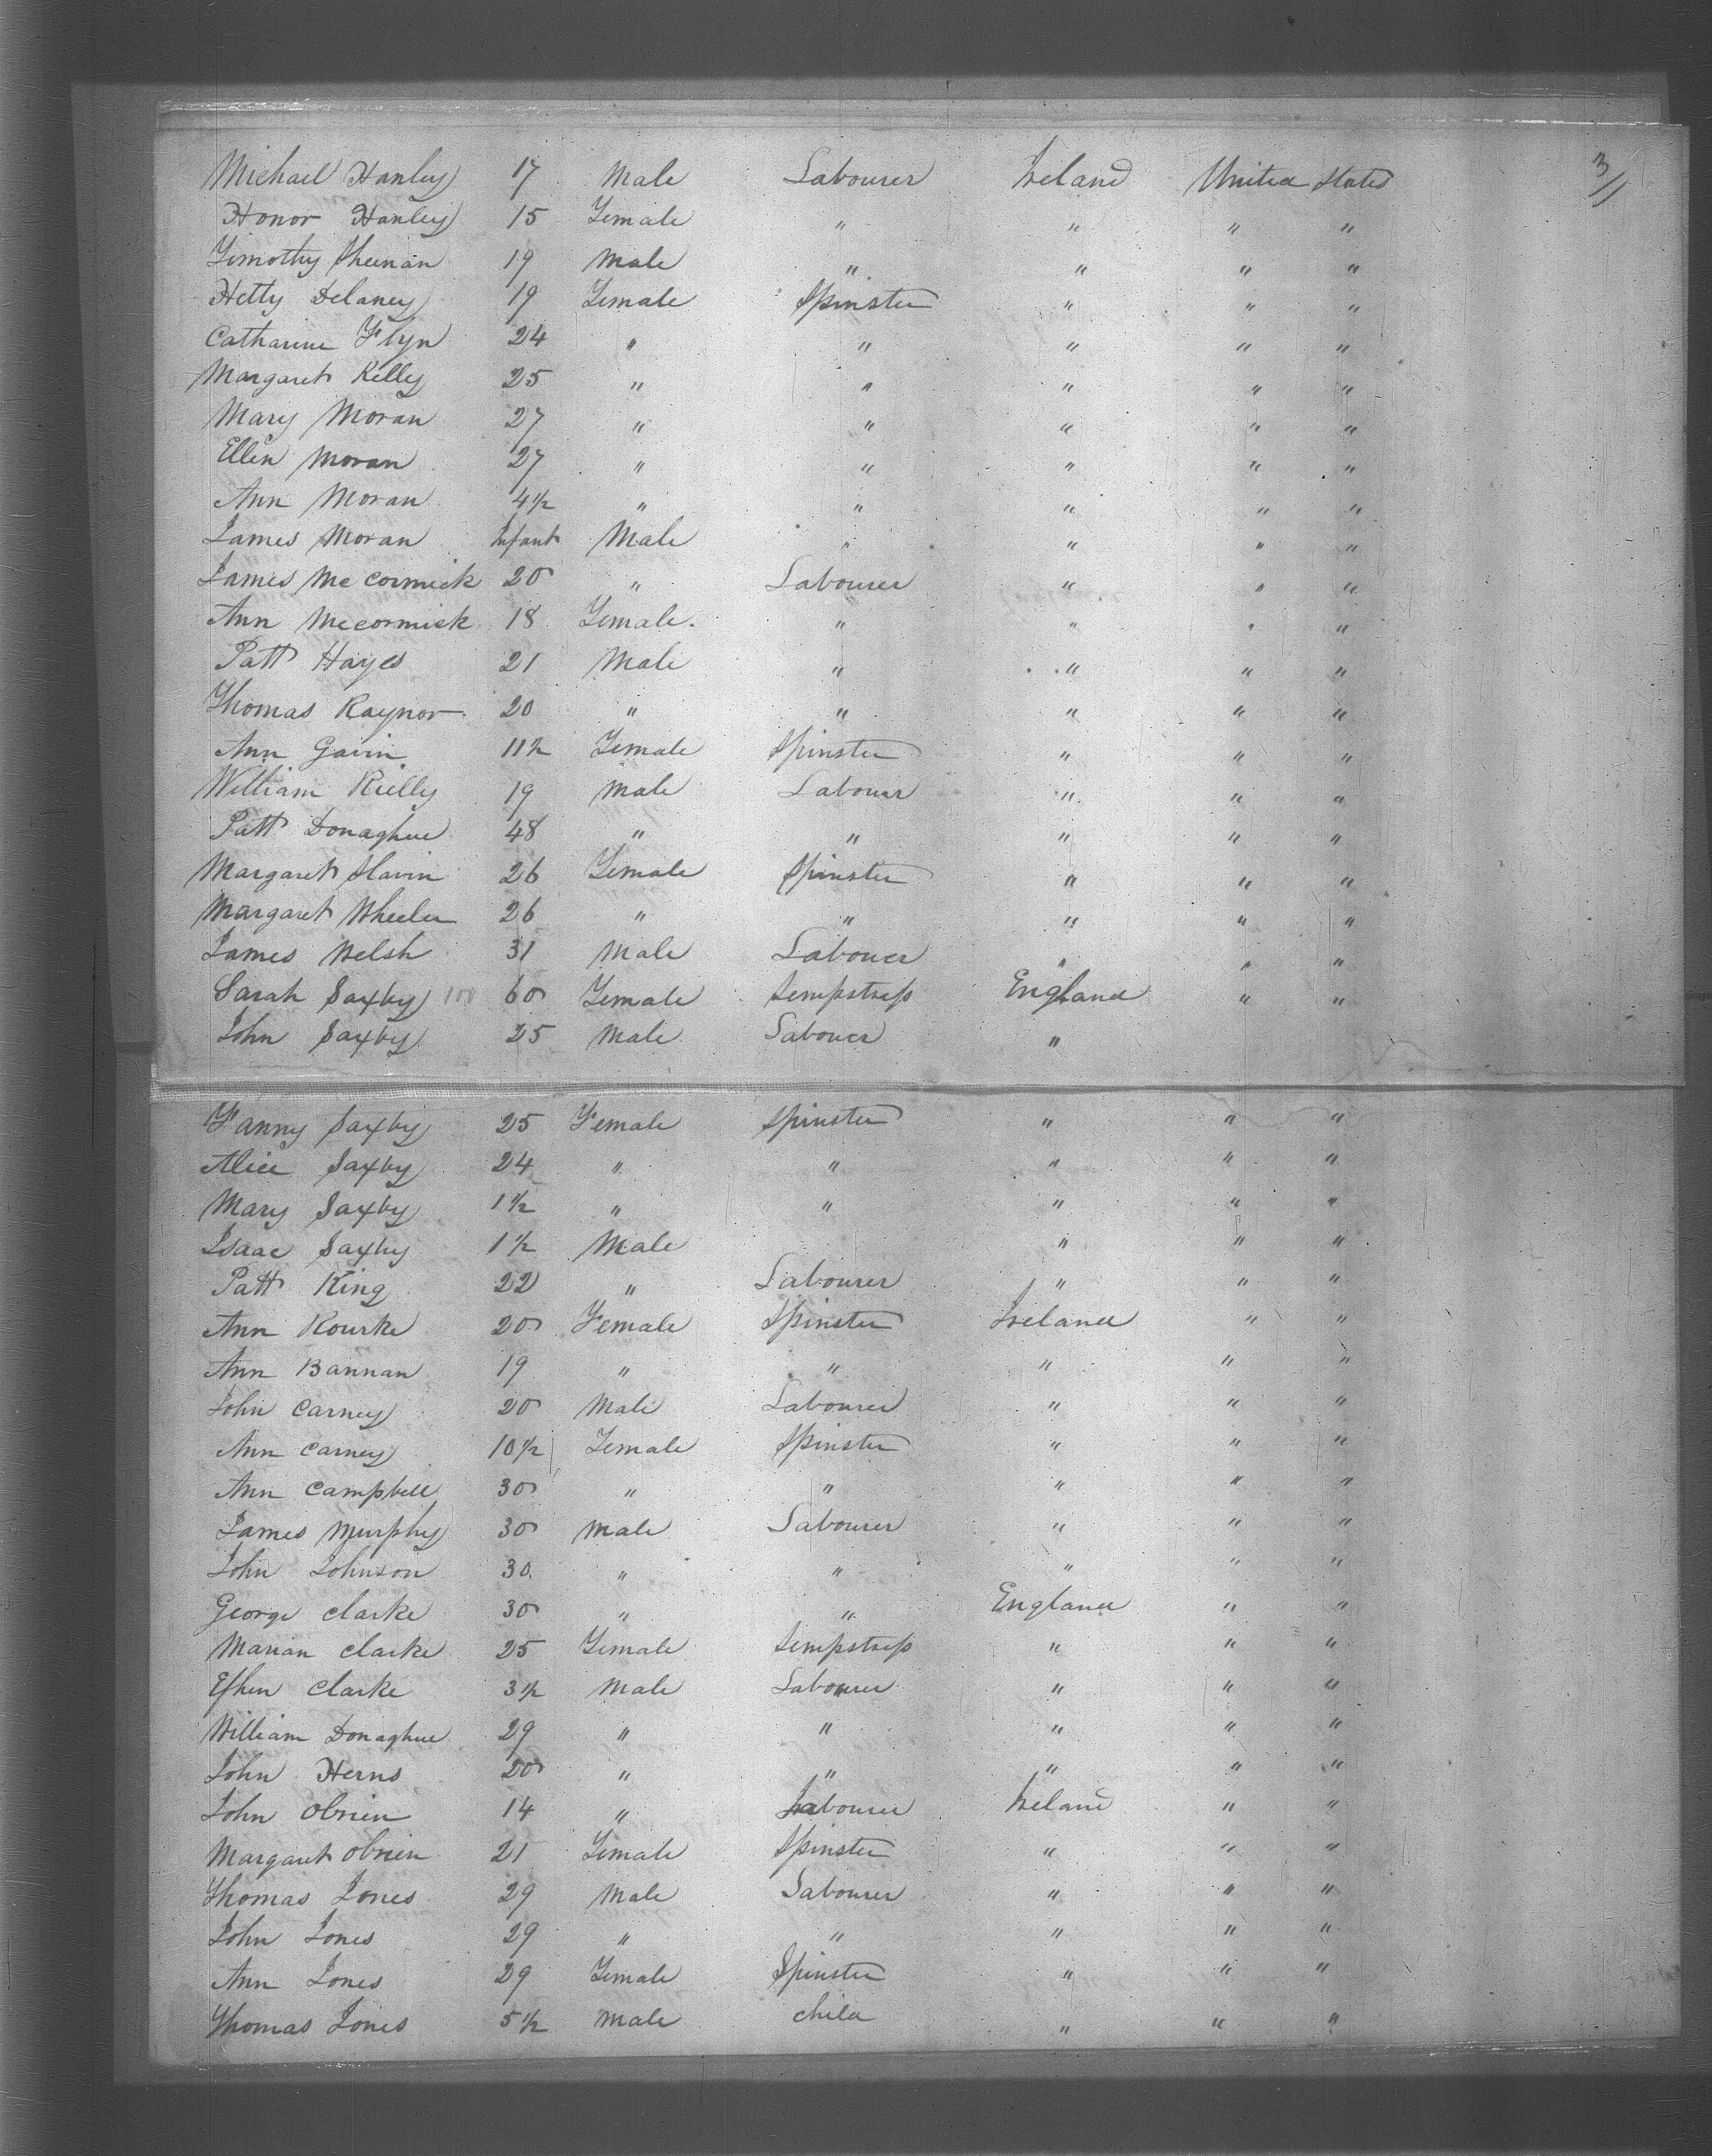 3/1
Michael Hanley 17 Male Labourer Ireland United States
Honor Hanley 15 Female " " " "
Timothy Sheenan 19 Male " " " "
Hetty Delaney 19 Female Spinster " " "
Catharine Flyn 24 " " " " "
Margaret Kelly 25 " " " " "
Mary Moran 27 " " " " "
Ellen Moran 27 " " " " "
Ann Moran 4½ " " " " "
James Moran Infant Male " " " "
James McCormick 20 " Labourer " " "
Ann McCormick 18 Female " " " "
Patt Hayes 21 Male " " " "
Thomas Raynor 20 " " " " "
Ann Gavin 11½ Female Spinster " " "
William Rielly 19 Male Labourer " " "
Patt Donaghue 48 " " " " "
Margaret Slavin 26 Female Spinster " " "
Margaret Wheeler 26 " " " " "
James Welsh 31 Male Labouer " " "
Sarah Saxby 100 60 Female Sempstress England " "
John Saxby 25 Male Labouer "
Fanny Saxby 25 Female Spinster " " "
Alice Saxby 24 " " " " "
Mary Saxby 1½ " " " " "
Isaac Saxby 1½ Male " " "
Patt King 22 " Labourer " " "
Ann Rourke 20 Female Spinster Ireland " "
Ann Bannan 19 " " " " "
John Carney 20 Male Labourer " " "
Ann Carney 10½ Female Spinster " " "
Ann Campbell 30 " " " " "
James Murphy 30 Male Labourer " " "
John Johnson 30 " " " " "
George Clarke 30 " " England " "
Marian Clarke 25 Female Sempstress " " "
Clarke 3½ Male Labourer " " "
William Donaghue 29 " " " " "
John Herns 20 " " " " "
John Obrien 14 " Labourer Ireland " "
Margaret Obrien 21 Female Spinster " " "
Thomas Jones 29 Male Labourer " " "
John Jones 29 " " " " "
Ann Jones 29 Female Spinster " " "
Thomas Jones 5½ Male Child " " "